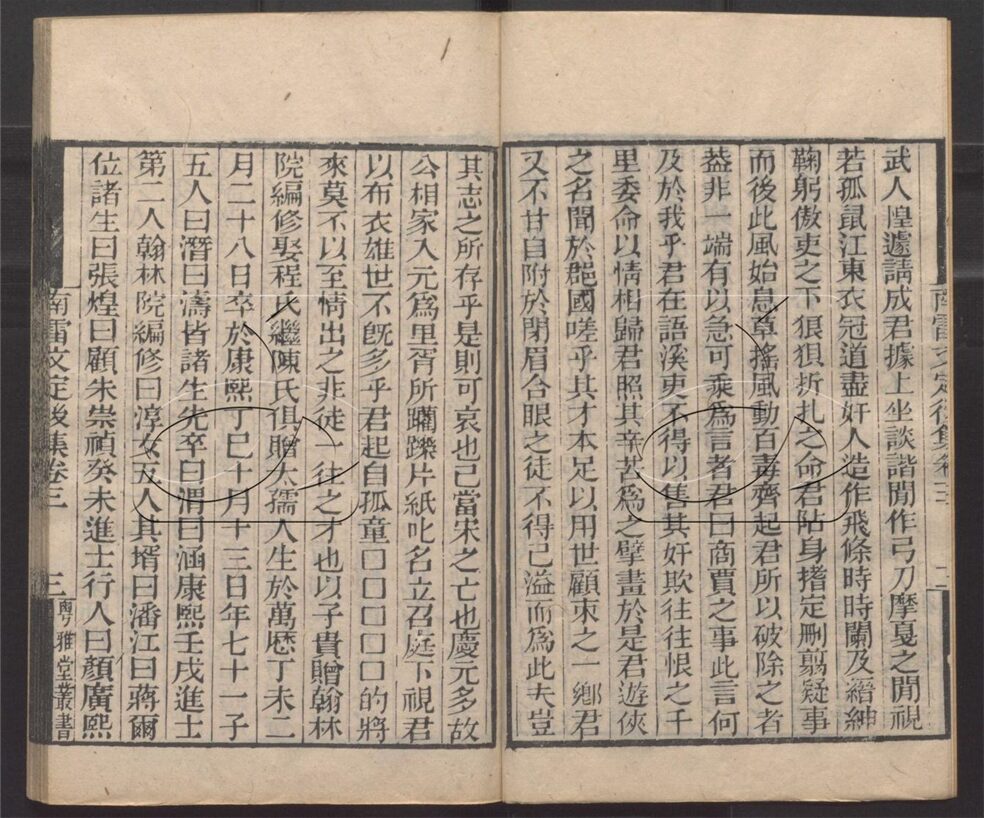 武人惶遽請成君據上坐談諧閒作弓刀摩戛之閒視
若孤鼠江東衣冠道盡奸人造作飛條時時闌及縉紳
鞠躬傲吏之下狠狽折扎之命君阽身揩定刪翦疑事
而後此風始息草搖風動百毒齊起君所以破除之者
葢非一端有以急可乘為言者君曰商賈之事此言何
及於我乎君在語溪吏不得以售其奸欺往往恨之千
里委命以情相歸君照其辛苦為之擘畫於是君遊俠
之名聞於郡國嗟乎其才本足以用世顧束之一鄉君
又不甘自附於閉眉合眼之徒不得已溢而為此夫豈
南雷文定後集卷三
二
其志之所存乎是則可哀也已當宋之亡也慶元多故
公相家入元為里胥所躪躒片紙叱名立召庭下視君
以布衣雄世不旣多乎君起自孤童囗囗囗囗囗的將
來莫不以至情出之非徒一往之才也以子貴贈翰林
院編修娶程氏繼陳氏俱贈太孺人生於萬厯丁未二
月二十八日卒於康熙丁巳十月十三日年七十一子
五人曰潛曰濤皆諸生先卒曰渭曰涵康熙壬戌進士
第二人翰林院編修曰淳女五人其壻曰潘江曰蔣爾
位諸生曰張煌曰顧朱崇禎癸未進士行人曰顏廣熙
南雷文定後集卷三
三
粵雅堂叢書